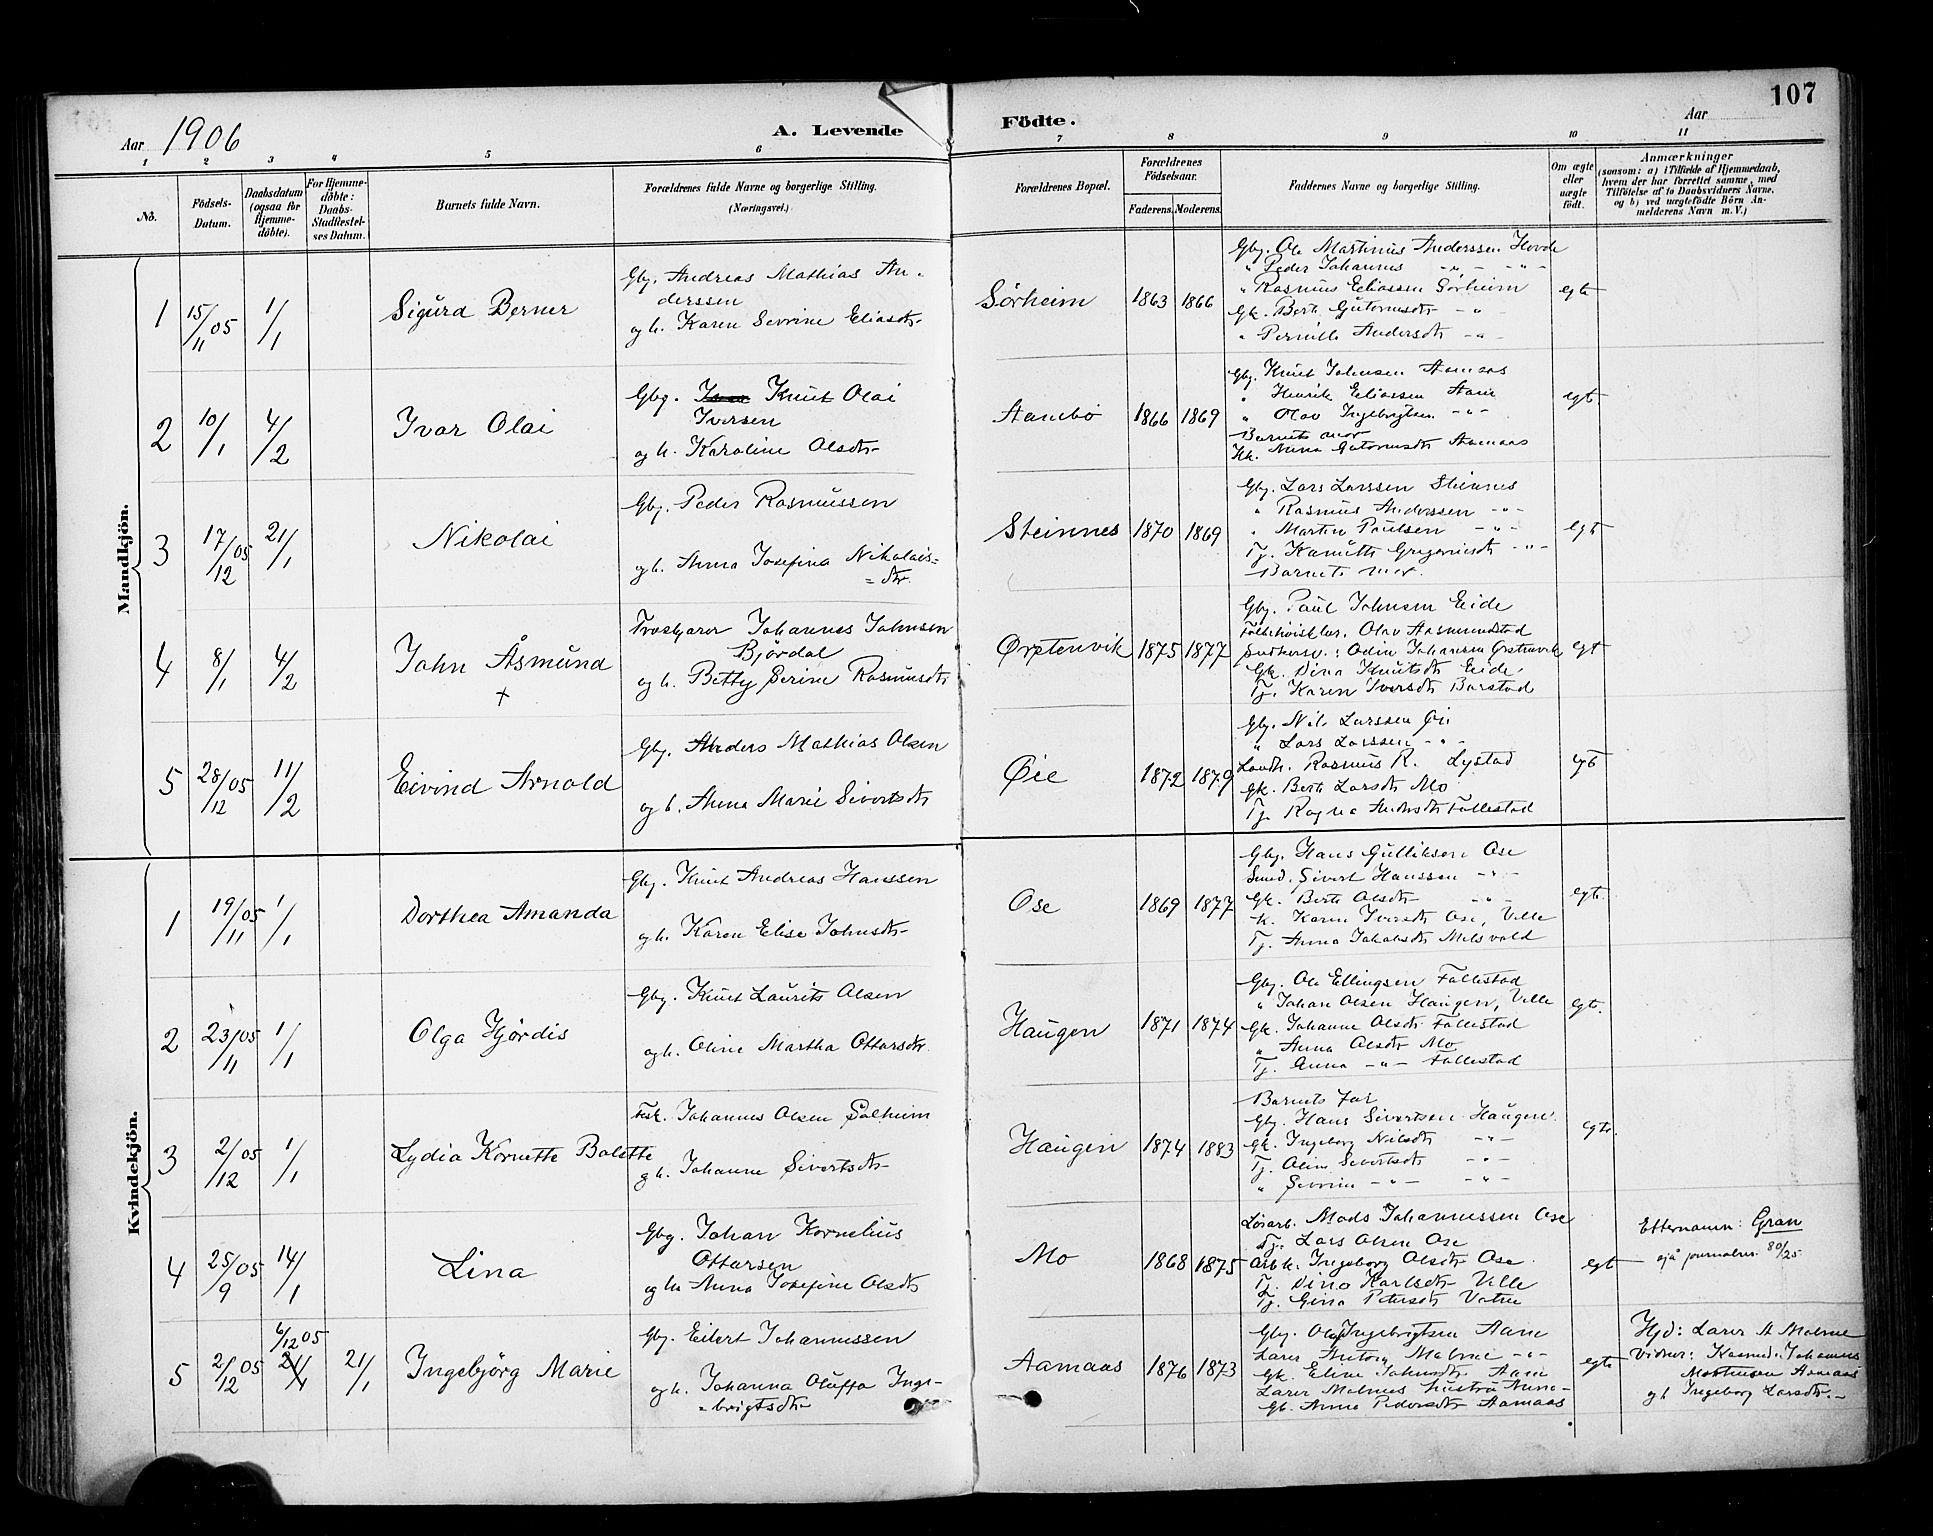 107
Aar 1906
A. Levende Födte.
Aar
1 2 3 4 5 6 7 8 9 10 11
No.
Födsels-Datum.
Daabsdatum (ogsaa for Hjemme-döbte).
For Hjemme-döbte: Daabs-Stadfestel-ses Datum.
Barnets fulde Navn.
Forældrenes fulde Navne og borgerlige Stilling.
(Næringsvei.)
Forældrenes Bopæl.
Forældrenes Födselsaar.
Faderens. Moderens.
Faddernes Navne og borgerlige Stilling.
Om ægte eller uægte födt.
Anmærkninger
(saasom: a) i Tilfælde af Hjemmedaab,
hvem der har forrettet samme, med
Tilföielse af to Daabsvidners Navne,
og b) ved uægtefödte Börn An-
melderens Navn m. V.)
Mandkjön.
1 15/11 05 1/1 Sigurd Berner
Gbg. Andreas Mathias An-
derssen
og h. Karen Sevrine Eliasdtr
Sørheim 1863 1866
Gbg. Ole Martinus Anderssen Hovde
" Peder Johannes -"- -"-
" Rasmus Eliassen Sørheim
Gk. Berte Gutormsdtr -"-
" Pernille Andersdtr -"-
egte
2 10/1 4/2 Ivar Olai
Gbg. Knut Olai
Iversen
og h. Karoline Olsdtr
Aambø 1866 1869
Gbg. Knut Johnsen Aamaas
" Henrik Eliassen Aam
" Olav Ingebrigtsen -"-
Barnets mor
Kk. Anna Gutormsdtr Aamaas
egt
3 17/12 05 21/1 Nikolai
Gbg. Peder Rasmussen
og h. Anna Josefina Nikolais-
=dtr.
Steinnes 1870 1869
Gbg. Lars Larssen Steinnes
" Rasmus Anderssen -"-
" Martin Paulsen -"-
Tj. Kanutte Gregoriusdtr -"-
Barnets mor.
egt
4 8/1 4/2 John Åsmund
+
Johannes Johnsen
Bjørdal
og h. Betty Serine Rasmusdtr
Ørstenvik 1875 1877
Gbg. Paul Johnsen Eide
Olav Aasmundstad
Odin Johansen Ørstenvik
Gk. Dina Knutsdtr Eide.
Tj. Karen Iversdtr Barstad
egt
5 28/12 05 11/2 Eivind Arnold
Gbg. Anders Mathias Olsen
og h. Anna Marie Sivertsdtr
Øie 1872 1879
Gbg. Nils Larssen Øie
" Lars Larssen -"-
Landh. Rasmus R. Lystad
Gk. Berte Larsdtr Mo
Tj. Ragna Andersdtr Follestad
egt
Kvindekjön.
1 19/11 05 1/1 Dorthea Amanda
Gbg. Knut Andreas Hanssen
og h. Karen Elise Johnsdtr
Ose 1869 1877
Gbg. Hans Gulliksen Ose
Smed. Sivert Hanssen -"-
Gk. Berte Olsdtr -"-
k. Karen Iversdtr Ose, Velle
Tj. Anna Jakobsdtr Melsvold
egte.
2 23/11 05 1/1 Olga Hjørdis
Gbg. Knut Laurits Olsen
og h. Oline Martha Ottarsdtr
Haugen 1871 1874
Gbg. Ole Ellingsen Follestad
" Johan Olsen Haugen, Velle
Gk. Johanne Olsdtr Follestad
" Anna Olsdtr Mo
Tj. Anna -"- Follestad
egt.
3 2/12 05 1/1 Lydia Kornette Bolette
Johannes Olsen Solheim
og h. Johanne Sivertsdtr
Haugen 1874 1883
Barnets far
Gbg. Hans Sivertsen Haugen
Gk. Ingeborg Nilsdtr -"-
Tj. Oline Sivertsdtr -"-
" Sevrine -"- -"-
egte.
4 25/9 05 14/1 Lina
Gbg. Johan Kornelius
Ottarsen
og h. Anna Josefine Olsdtr
Mo 1868 1875
Løsarb. Mads Johannessen Ose
Tj. Lars Olsen Ose
Arb.k. Ingeborg Olsdtr Ose.
Tj. Dina Karlsdtr Velle
Tj. Gina Petersdtr Vatne
egt
Etternamn: Gran
sjå journalnr. 80/25
5 2/12 05 6/12 05 21/1 21/1 Ingebjörg Marie
Gbg. Eilert Johannessen
og h. Johanna Oluffa Inge-
=brigtsdtr
Aamaas 1876 1873
Gbg. Ola Ingebrigtsen Aam
Lærer Antoin Malme -"-
Gk. Eline Johnsdtr Aam
Lærer Malmes hustru Anna
Gk. Anne Pedersdtr Aamaas
egte
Hjd: Lærer A Malme
Vidner: Johannes
Mathisen Aamaas
og h Ingeborg Larsdtr